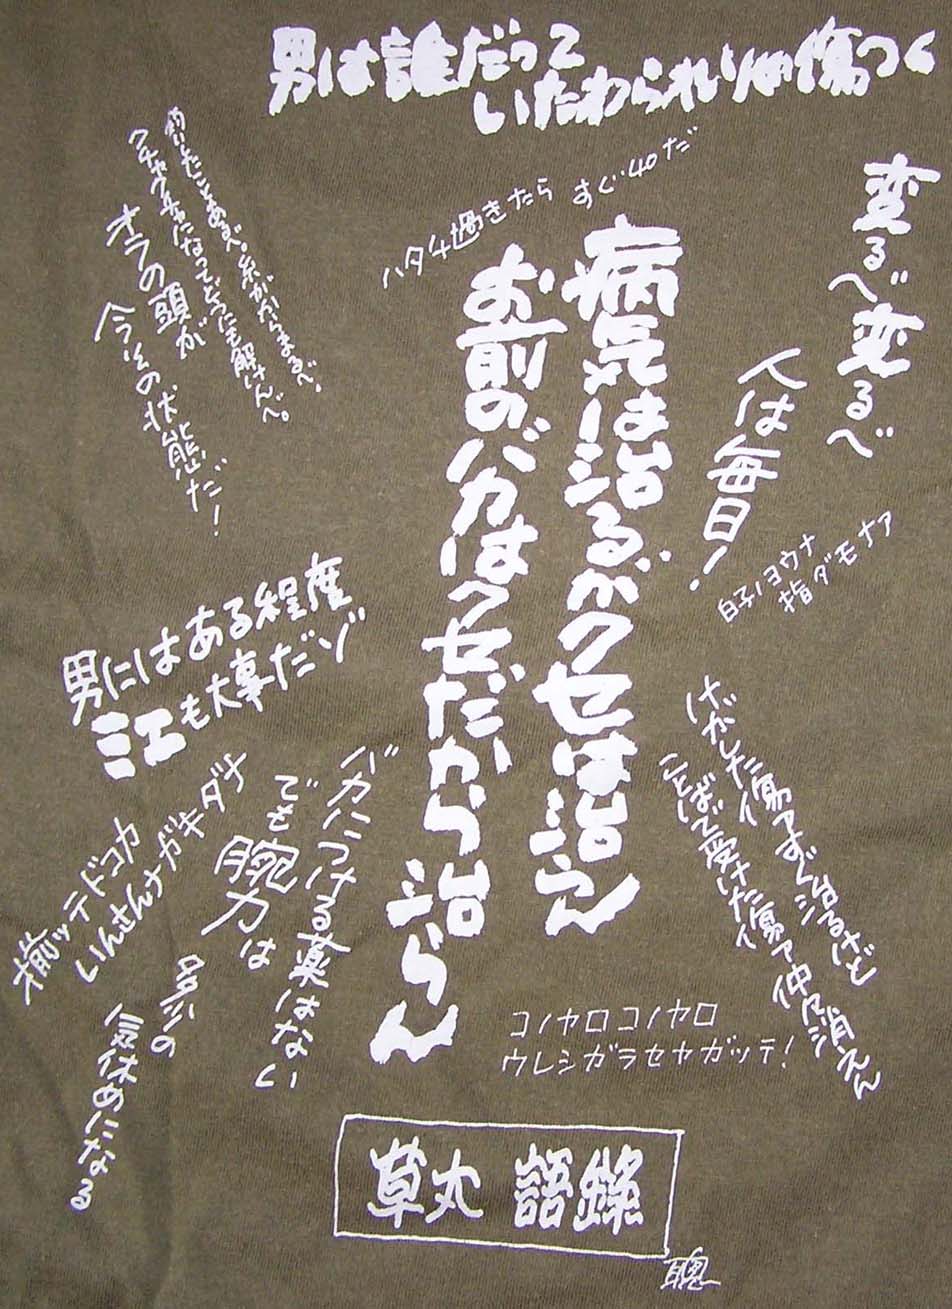 男は誰だって
いたわられりゃ傷つく
変るべ変るべ
人は毎日！
ハタチ過きたら すぐ40だ
病気は治るがクセは治らん
お前のバカはクセだから治らん
釣りしたことあるべ。糸がからまるべ。
クチャクチャになってどうにも解けんべ。
オラの頭が
今その状態だ！
白子ノヨウナ
指ダモナア
男にはある程度
ミエも大事だゾ
揃ッテドコカ
いんさんナガキダナ
バカにつける薬はない
でも腕力は
多少の
気休めになる
コノヤロコノヤロ
ウレシガラセヤガッテ！
草丸 語録
聰